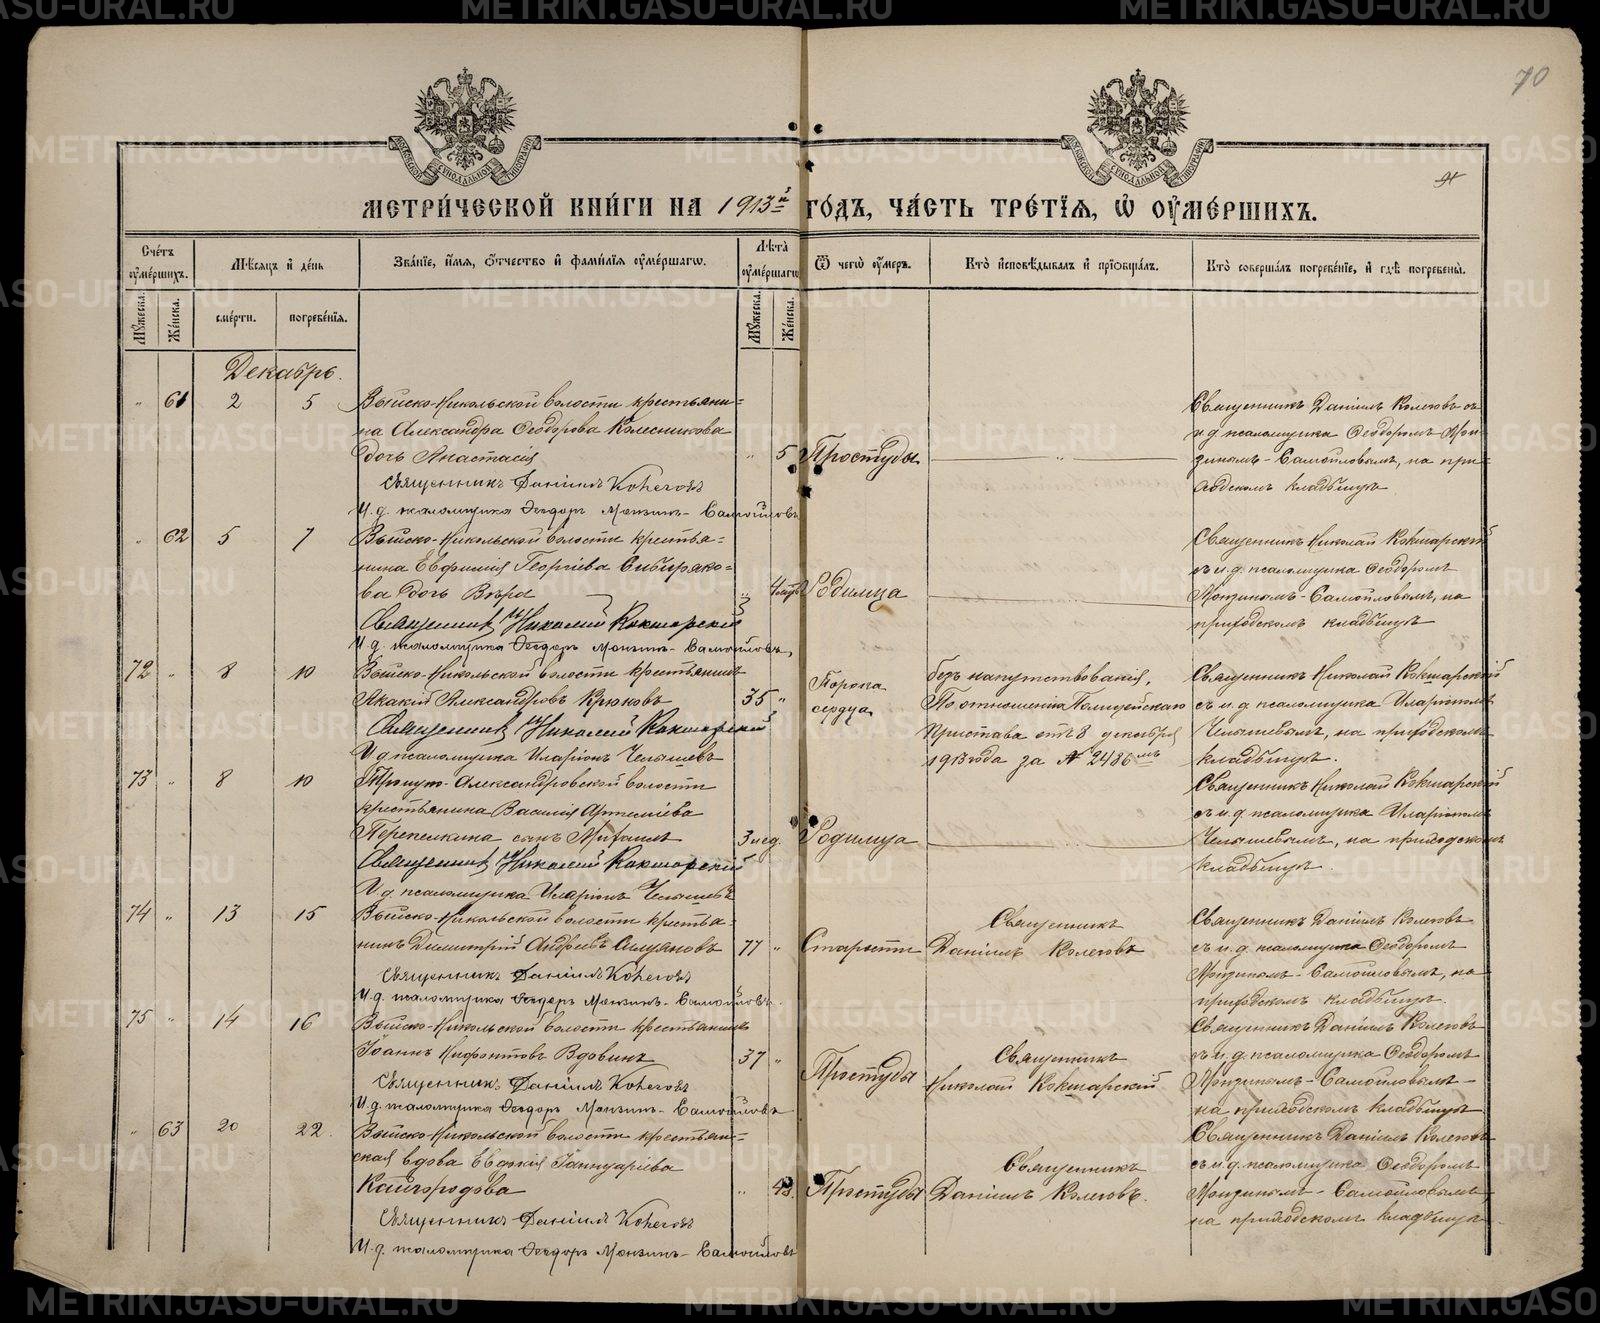 70
МЕТРИЧЕСКОЙ КНИГИ НА 1913й ГОДЪ, ЧАСТЬ ТРЕТІЯ, Ѿ ОУМЕРШИХЪ.
Счетъ оумершихъ.
Мѣсяцъ и день
Званіе, имя, отчество и фамилія оумершагѡ.
Лѣта оумершагѡ
Ѿ чегѡ оумеръ.
Кто исповѣдывалъ и пріобщалъ.
Кто совершалъ погребеніе, и гдѣ погребены.
Мужеска. Женска. смерти. погребенія. Мужеска. Женска.
Декабрь.
" 61 2 5 Выйско-Никольской волости крестьяни=
на Александра Ѳеодорова Колесникова
дочь Анастасія " 5 Простуды
Священникъ Даніилъ Конеговъ
И. д. псаломщика Ѳеодоръ Монзинъ-Самойловъ
Священникъ Даніилъ Конеговъ съ
и. д. псаломщика Ѳеодоромъ Мон-
зинымъ-Самойловымъ, на при=
ходскомъ кладбищѣ
" 62 5 7 Выйско-Никольской волости крестья=
нина Евфимія Георгіева Сибиряко=
ва дочь Вѣра " Родимца
Священникъ Николай Кокшарскій
И. д. псаломщика Ѳеодоръ Монзинъ-Самойловъ,
Священникъ Николай Кокшарскій
съ и. д. псаломщика Ѳеодоромъ
Монзинымъ-Самойловымъ, на
приходскомъ кладбищѣ
72 " 8 10 Выйско-Никольской волости крестьянинъ
Акакій Александровъ Крюковъ 35 "
Порока
сердца
Священникъ Николай Кокшарскій
И. д. псаломщика Иларіонъ Челышевъ
безъ напутствованія,
По отношенію Полицейскаго
Пристава отъ 8 декабря
1913 года за № 2486мъ
Священникъ Николай Кокшарскій
съ и. д. псаломщика Иларіономъ
Челышевымъ, на приходскомъ
кладбищѣ.
73 " 8 10 Троицко-Александровской волости
крестьянина Василія Артеміева
Перепелкина сынъ Михаилъ 3 нед. Родимца
Священникъ Николай Кокшарскій
И. д. псаломщика Иларіонъ Челышевъ
Священникъ Николай Кокшарскій
съ и. д. псаломщика Иларіономъ
Челышевымъ, на приходскомъ
кладбищѣ.
74 " 13 15 Выйско-Никольской волости крестья=
нинъ Димитрій Андреевъ 77 " Старости
Священникъ Даніилъ Конеговъ
И. д. псаломщика Ѳеодоръ Монзинъ-Самойловъ.
Священникъ
Даніилъ Конеговъ
Священникъ Даніилъ Конеговъ
съ и. д. псаломщика Ѳеодоромъ
Монзинымъ-Самойловымъ, на
приходскомъ кладбищѣ.
75 " 14 16 Выйско-Никольской волости крестьянинъ
Іоаннъ Нифонтовъ Вдовинъ 37 " Простуды
Священникъ Даніилъ Конеговъ
И. д. псаломщика Ѳеодоръ Монзинъ-Самойловъ
Священникъ
Николай Кокшарскій
Священникъ Даніилъ Конеговъ
съ и. д. псаломщика Ѳеодоромъ
Монзинымъ-Самойловымъ-
на приходскомъ кладбищѣ
" 63 20 22. Выйско-Никольской волости крестьян=
ская вдова Евдокія Іаннуаріева
Кайгородова " Простуды
Священникъ Даніилъ Конеговъ
И. д. псаломщика Ѳеодоръ Монзинъ-Самойловъ
Священникъ
Даніилъ Конеговъ.
Священникъ Даніилъ Конеговъ
съ и. д. псаломщика Ѳеодоромъ
Монзинымъ-Самойловымъ
на приходскомъ кладбищѣ.
METRIKI.GASO-URAL.RU